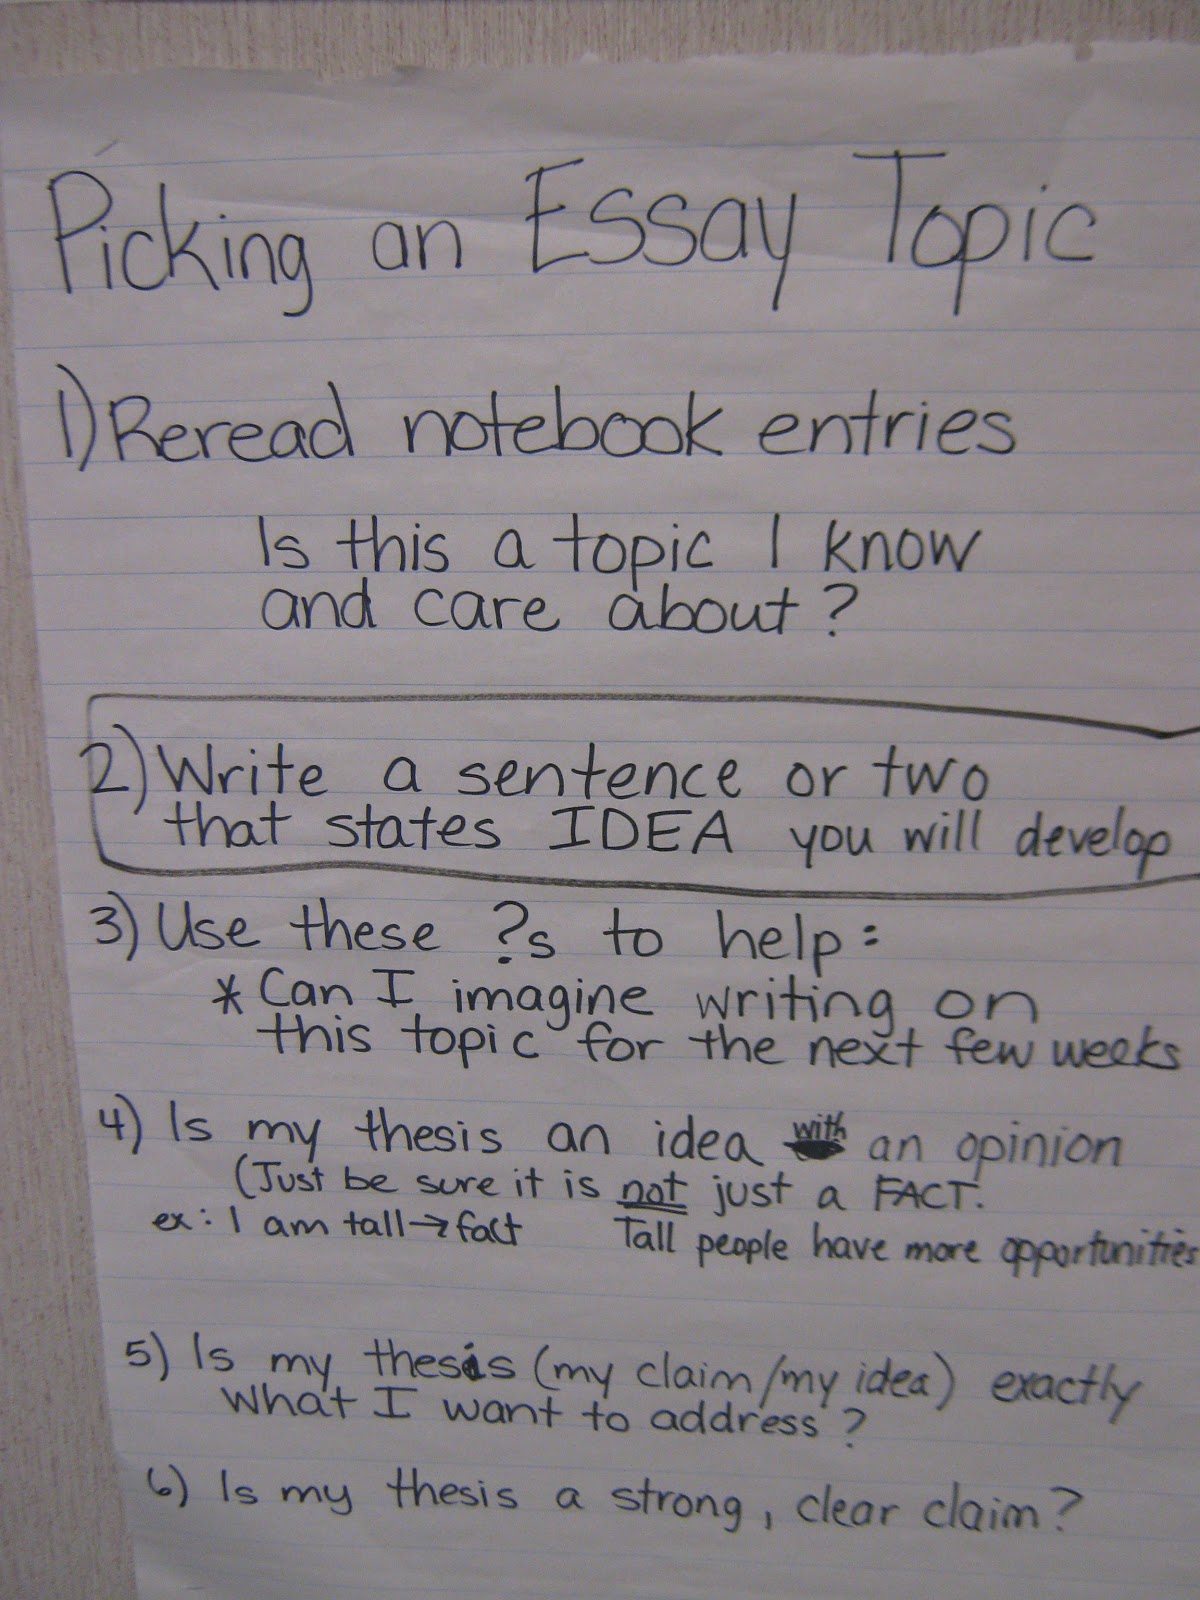 Picking an Essay Topic
1) Reread notebook entries
Is this a topic I know
and care about?
2) Write a sentence or two
that states IDEA you will develop
3) Use these ?s to help:
* Can I imagine writing on
this topic for the next few weeks
4) Is my thesis an idea with an opinion
(Just be sure it is not just a FACT.
ex: I am tall → fact Tall people have more opportunities
5) Is my thesis (my claim/my idea) exactly
what I want to address?
6) Is my thesis a strong, clear claim?